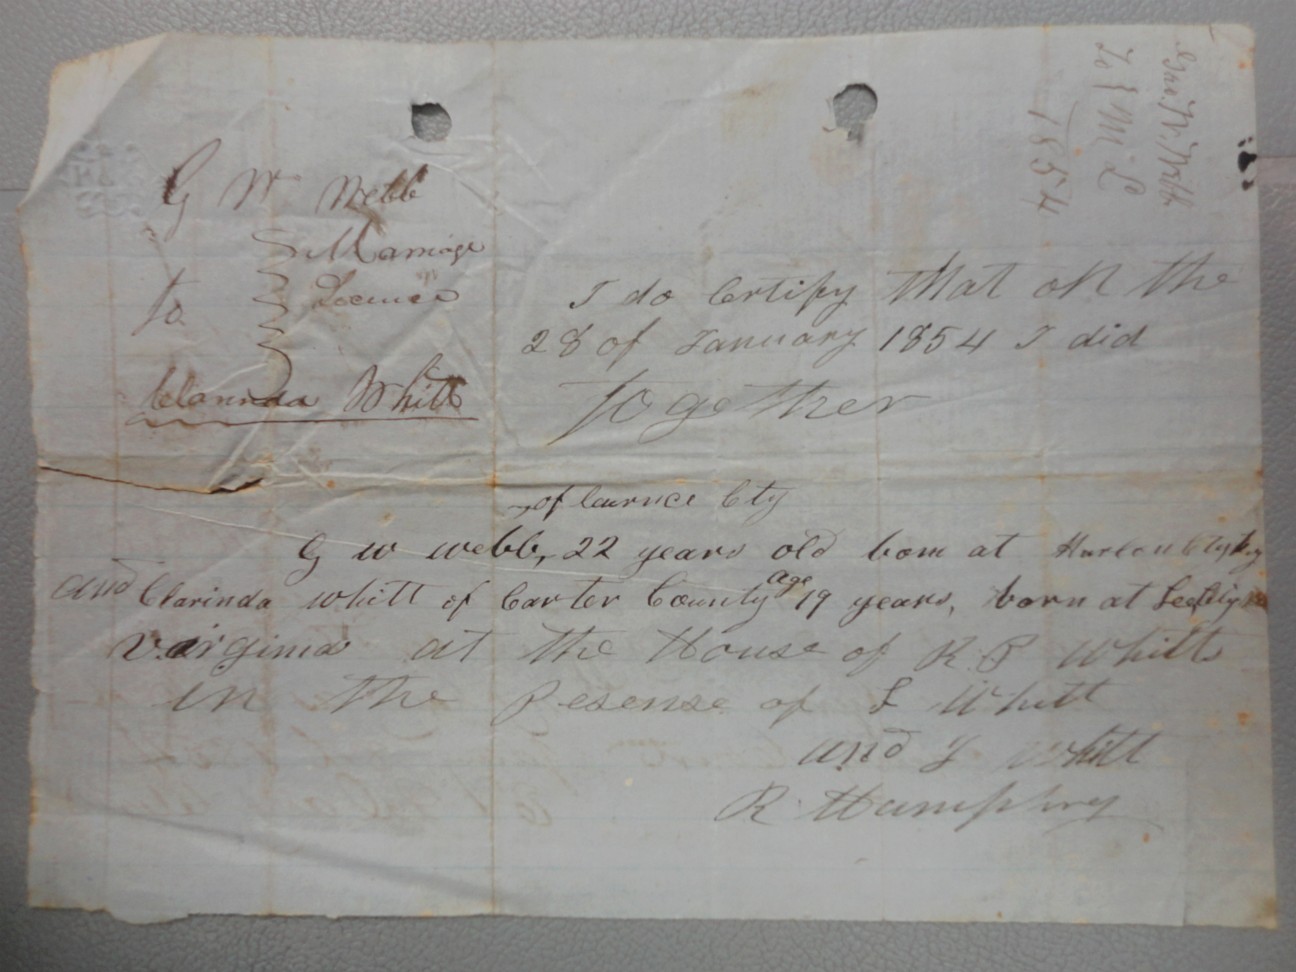 G W Webb
Marriage
to
License
Clarinda Whitt
Geo. W. Webb
To } M L
1854
I do Certify that on the
28 of January 1854 I did
together
of Lawrnce Cty
G W Webb, 22 years old born at Harlan Cty Ky
and Clarinda Whitt of Carter County age 19 years, born at Lee
Virginia at the House of R P Whitt
in the Pesense of S Whitt
and J Whitt
R Humphrey